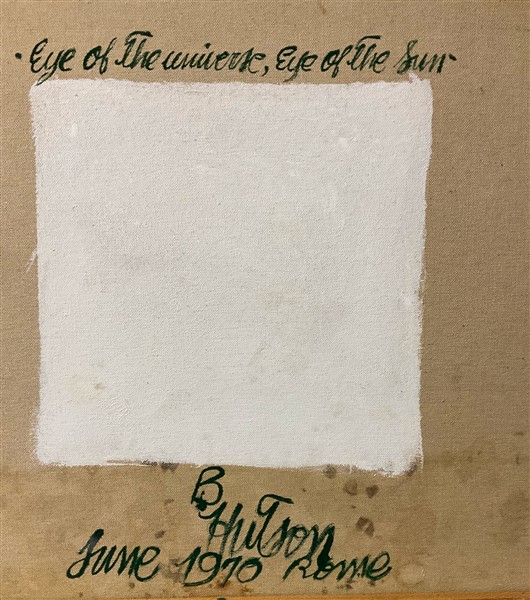 · Eye of The universe, Eye of The Sun ·
B
Hutson
June 1970 Rome